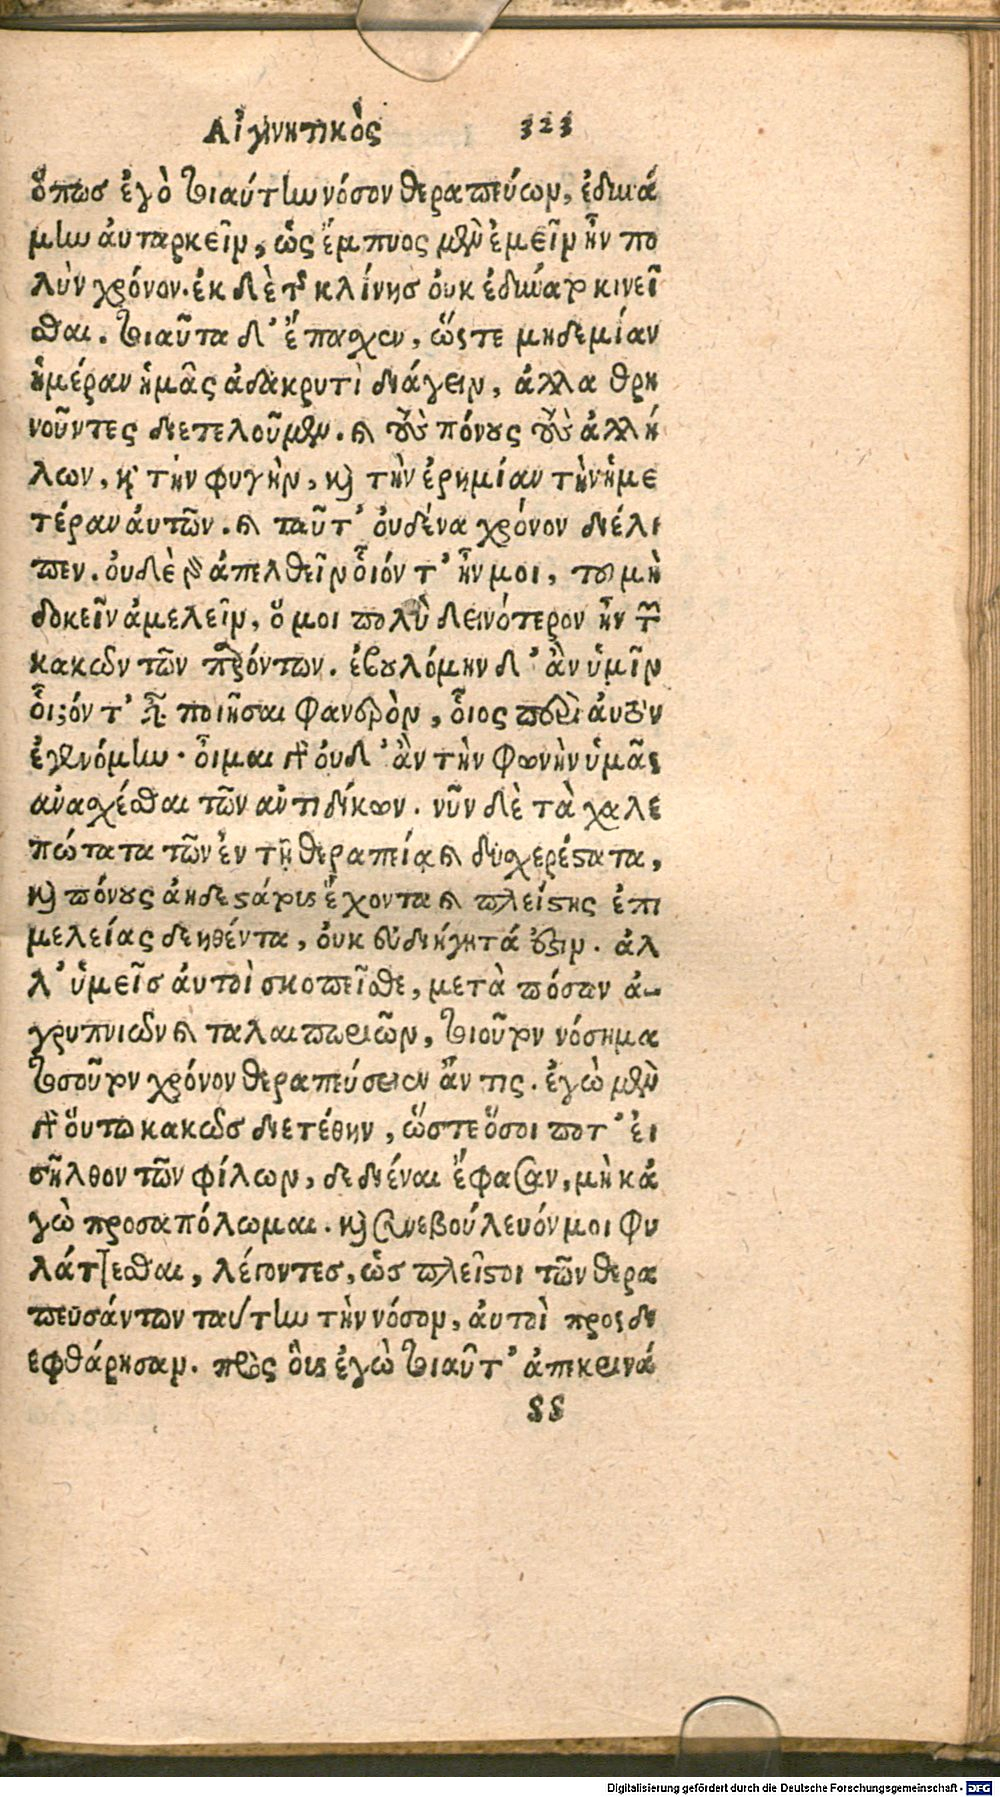 Αἰγινητικὸς 323
ὅπως ἐγὸ τοιαύτην νόσον θεραπεύων, ἐδυνά
μην ἀυταρκεῖν, ὡς ἔμπυος μὲν ἐμεῖν ἦν πο
λὺν χρόνον. ἐκ δὲ τῆς κλίνης ὀυκ ἐδύναρ κινεῖ
σθαι. τοιαῦτα δ' ἔπασχον, ὥςτε μηδεμίαν
ἡμέραν ἡμᾶς ἀδακρυτὶ διάγειν, ἀλλα θρη
νοῦντες διετελοῦμεν. καὶ τοὺς πόνους τοὺς ἀλλή
λων, καὶ τὴν φυγὴν, καὶ τὴν ἐρημίαν τὴν ἡμε
τέραν ἀυτῶν. καὶ ταῦτ' ὀυδένα χρόνον διέλι
πεν. ὀυδὲ γὰρ ἀπελθεῖν ὅιόντ' ἦν μοι, τοι μὴ
δοκεῖν ἀμελεῖν, ὅ μοι πολὺ δεινότερον ἦν τῶν
κακῶν τῶν παρόντων. ἐβουλόμην δ' ἂν ὑμῖν
ὅιόν τ' εἶναι ποιῆσαι φανερὸν, ὅιος περὶ ἀυτὸν
ἐγενόμην. ὅιμαι γὰρ ὀυδ' ἂν τὴν φωνὴν ὑμᾶς
ἀναχέσθαι τῶν ἀντιδίκων. νῦν δὲ τὰ χαλε
πώτατα τῶν ἐν τῇ θεραπείᾳ καὶ δυσχερέστατα,
καὶ πόνους ἀηδεστάτους ἔχοντα καὶ πλείστης ἐπι
μελείας δεηθέντα, ὀυκ ἐυδιήγητά ἐστιν. ἀλ
λ' ὑμεῖς ἀυτοὶ σκοπεῖσθε, μετὰ πόσων ἀ-
γρυπνιῶν καὶ ταλαιπωριῶν, τοιοῦτον νόσημα
τοσοῦτον χρόνον θεραπεύσειεν ἄν τις. ἐγὼ μὲν
γὰρ ὅυτω κακῶς διετέθην, ὥστε ὅσοι ποτ' ἐι
σῆλθον τῶν φίλων, δεδιέναι ἔφασαν, μὴ κἀ
γὼ προσαπόλωμαι. καὶ συνεβούλευόν μοι φυ
λάττεσθαι, λέγοντες, ὡς πλεῖστοι τῶν θερα
πευσάντων ταύτην τὴν νόσον, ἀυτοὶ προςδι
εφθάρησαν. πρὸς ὃις ἐγὼ τοιαῦτ' ἀπεκρινά
SS
Digitalisierung gefördert durch die Deutsche Forschungsgemeinschaft - DFG